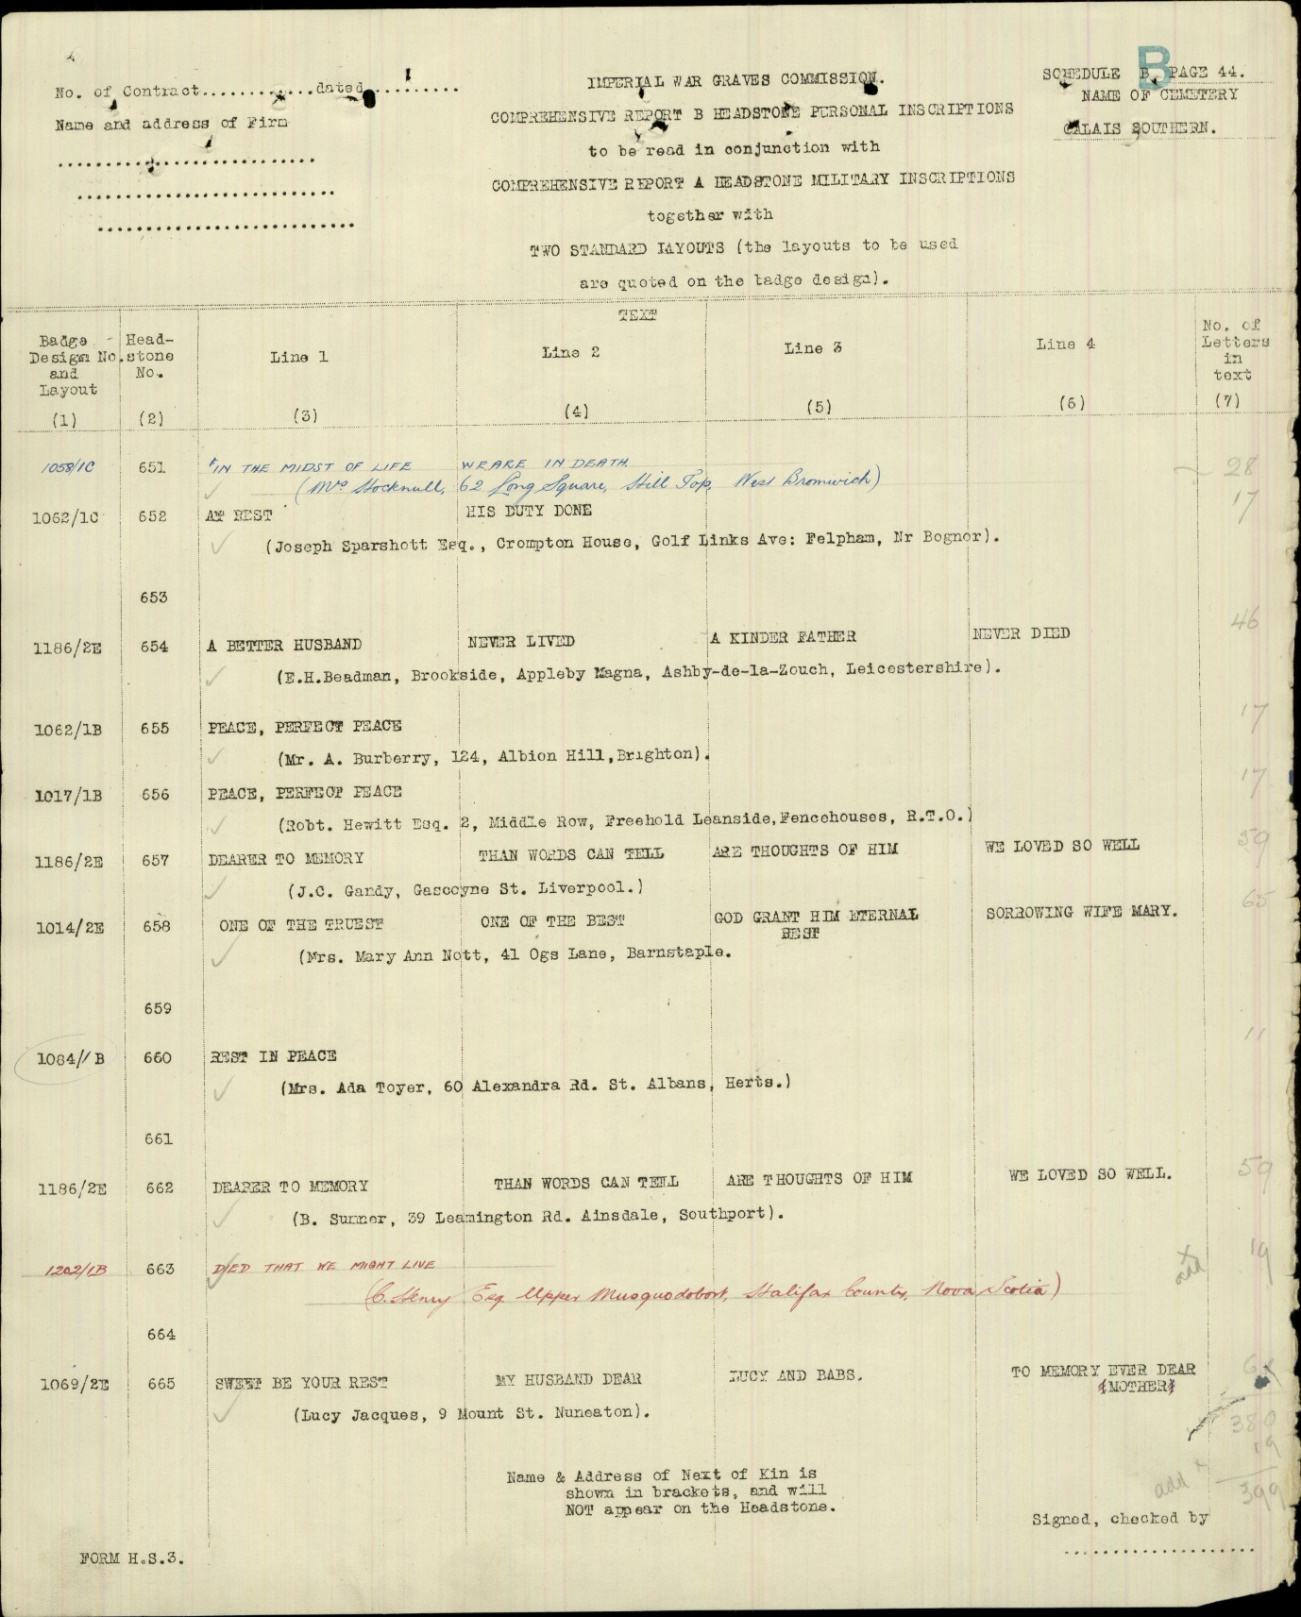 B
No. of Contract.............dated..........
IMPERIAL WAR GRAVES COMMISSION.
SCHEDULE B, PAGE 44.
Name and address of Firm
COMPREHENSIVE REPORT B HEADSTONE PERSONAL INSCRIPTIONS
NAME OF CEMETERY
to be read in conjunction with
CALAIS SOUTHERN.
COMPREHENSIVE REPORT A HEADSTONE MILITARY INSCRIPTIONS
together with
TWO STANDARD LAYOUTS (the layouts to be used
are quoted on the badge design).
TEXT
Badge Design No. and Layout (1)
Head-stone No. (2)
Line 1 (3)
Line 2 (4)
Line 3 (5)
Line 4 (6)
No. of Letters in text (7)
1058/1C 651 "IN THE MIDST OF LIFE WE ARE IN DEATH 28
(Mrs Stocknull, 62 Long Square, Hill Top, West Bromwich)
1062/1C 652 AT REST HIS DUTY DONE 17
(Joseph Sparshott Esq., Crompton House, Golf Links Ave: Felpham, Nr Bognor).
653
1186/2E 654 A BETTER HUSBAND NEVER LIVED A KINDER FATHER NEVER DIED 46
(E.H.Beadman, Brookside, Appleby Magna, Ashby-de-la-Zouch, Leicestershire).
1062/1B 655 PEACE, PERFECT PEACE 17
(Mr. A. Burberry, 124, Albion Hill,Brighton).
1017/1B 656 PEACE, PERFECT PEACE 17
(Robt. Hewitt Esq. 2, Middle Row, Freehold Leanside,Fencehouses, R.T.O.)
1186/2E 657 DEARER TO MEMORY THAN WORDS CAN TELL ARE THOUGHTS OF HIM WE LOVED SO WELL 59
(J.C. Gandy, Gascoyne St. Liverpool.)
1014/2E 658 ONE OF THE TRUEST ONE OF THE BEST GOD GRANT HIM ETERNAL REST SORROWING WIFE MARY. 65
(Mrs. Mary Ann Nott, 41 Ogs Lane, Barnstaple.
659
1084/1B 660 REST IN PEACE 11
(Mrs. Ada Toyer, 60 Alexandra Rd. St. Albans, Herts.)
661
1186/2E 662 DEARER TO MEMORY THAN WORDS CAN TELL ARE THOUGHTS OF HIM WE LOVED SO WELL. 59
(B. Sumner, 39 Leamington Rd. Ainsdale, Southport).
1202/1B 663 DIED THAT WE MIGHT LIVE add 19
(C. Henry Esq Upper Musquodobort, Halifax County, Nova Scotia)
664
1069/2E 665 SWEET BE YOUR REST MY HUSBAND DEAR LUCY AND BABS. TO MEMORY EVER DEAR (MOTHER)
(Lucy Jacques, 9 Mount St. Nuneaton).
380
19
add 399
Name & Address of Next of Kin is
shown in brackets, and will
NOT appear on the Headstone.
Signed, checked by
FORM H.S.3.